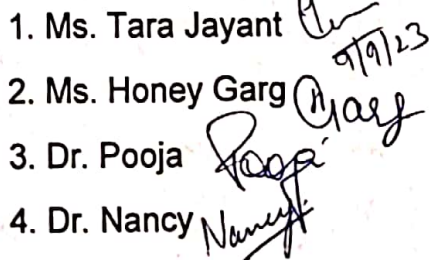 1. Ms. Tara Jayant
9/9/23
2. Ms. Honey Garg Garg
3. Dr. Pooja Pooja
4. Dr. Nancy Nancy